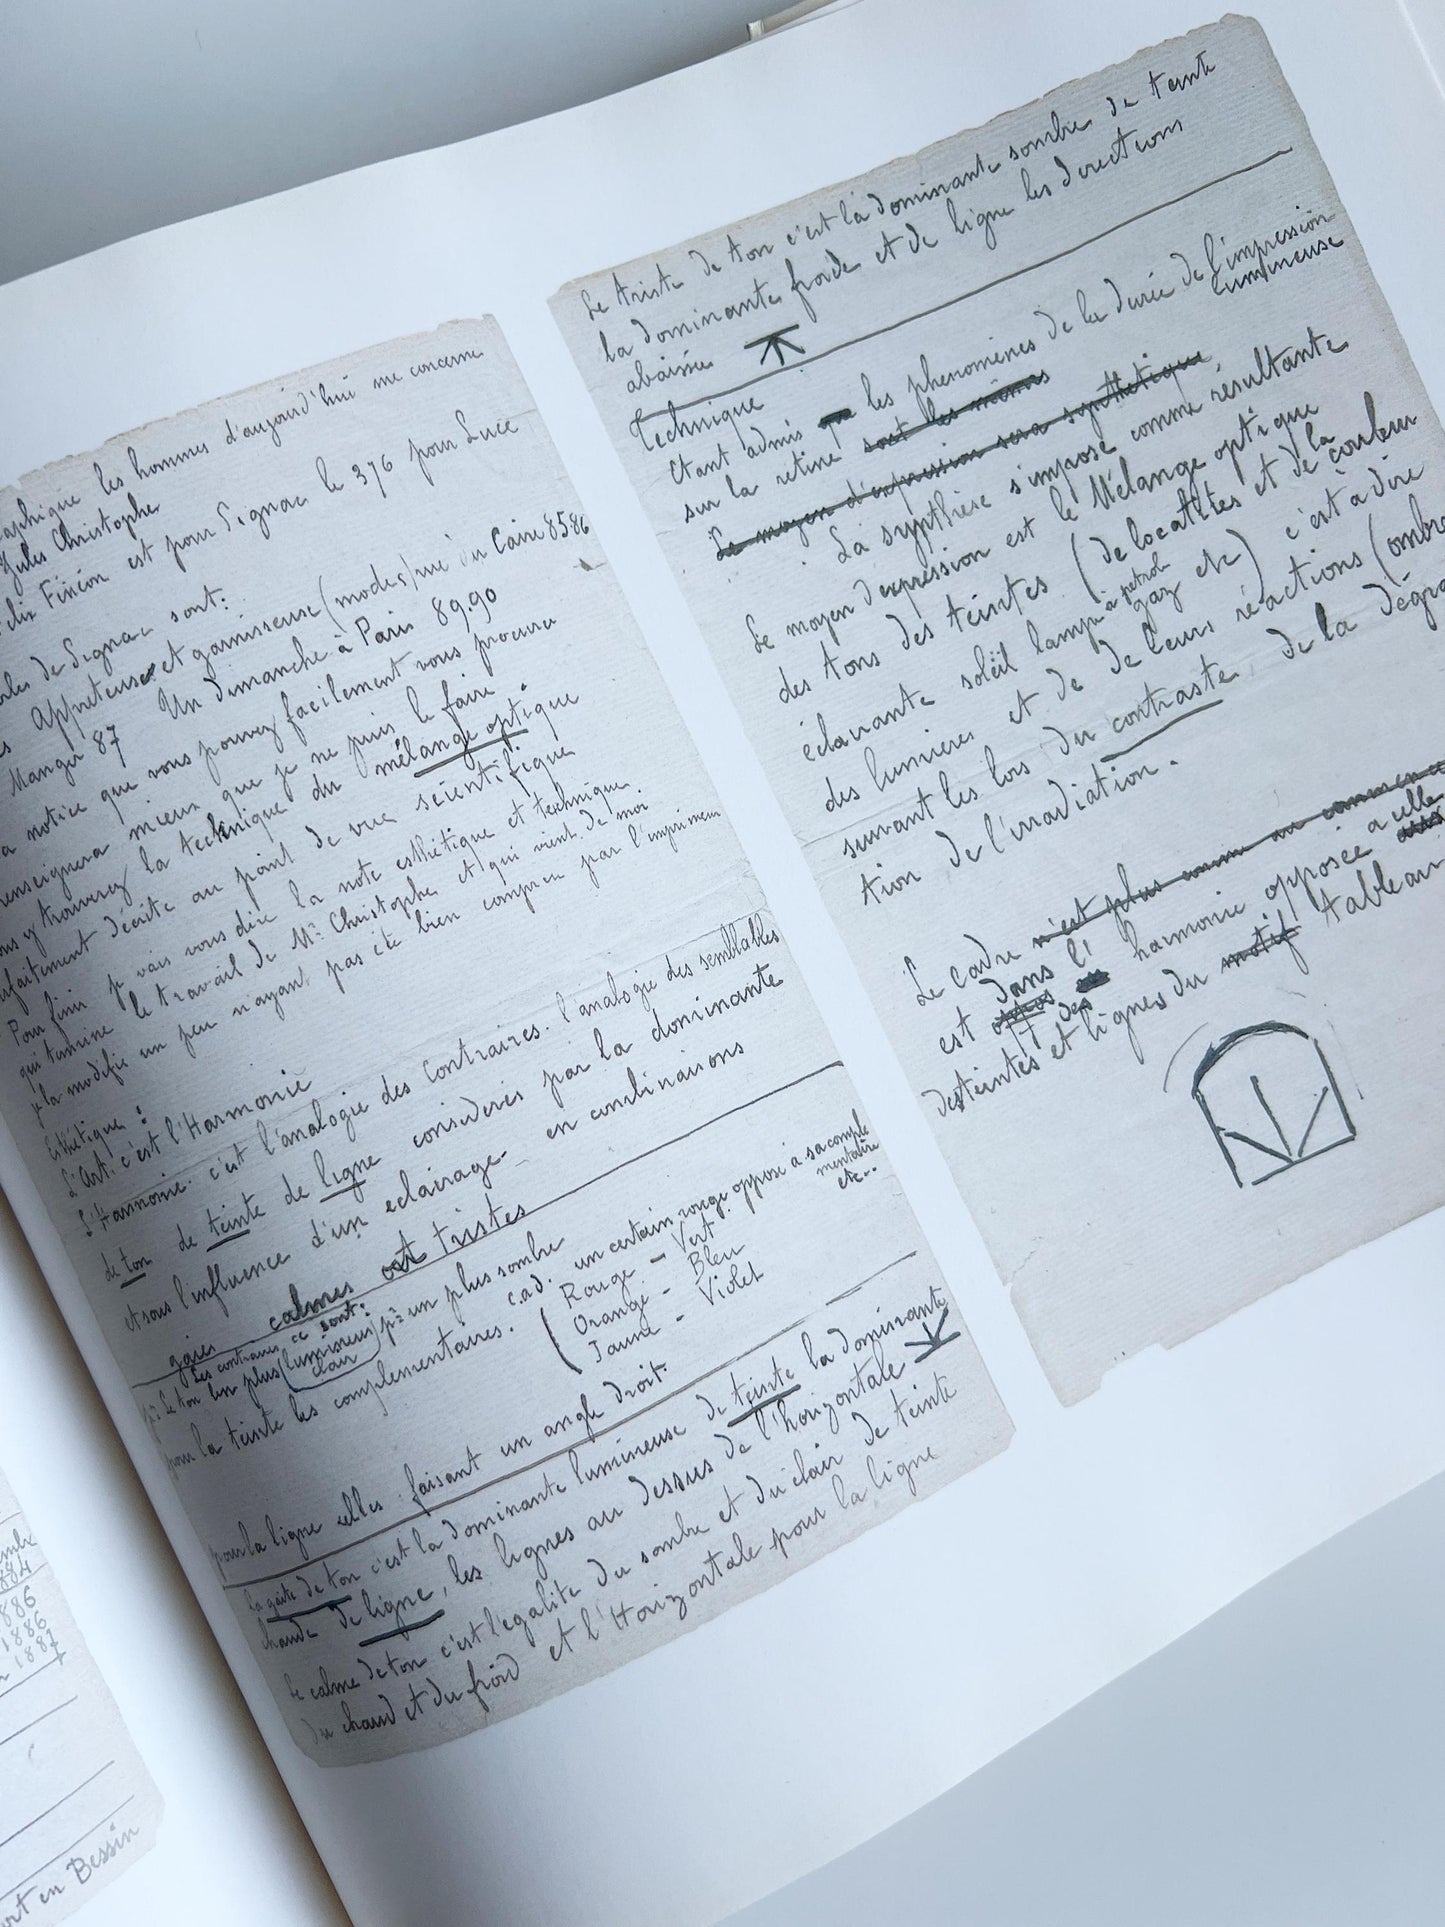 les hommes d'aujourd'hui me concerne
Jules Christophe
est pour Signac le 376 pour Luce
de Signac sont:
Appreteuse et garnisseuse (modes) rue du Caire 85 86
Manger 87 Un dimanche à Paris 89.90
notice que vous pouvez facilement vous procurer
renseignera mieux que je ne puis le faire
vous y trouverez la technique du mélange optique
décrite au point de vue scientifique
Pour finir je vais vous dire la note esthétique et technique
qui termine le travail de Mr Christophe et qui vient de moi
je la modifie un peu n'ayant pas été bien compris par l'imprimeur
Esthétique :
L'Art. c'est l'Harmonie
L'Harmonie. c'est l'analogie des Contraires. l'analogie des semblables
de ton de teinte de ligne considerés par la dominante
et sous l'influence d'un eclairage. en combinaisons
gaies calmes ou tristes
Les contraires ce sont:
Le ton un plus lumineux clair pr un plus sombre
pour la teinte les complementaires. c.a.d. un certain rouge opposé à sa complémentaire etc..
Rouge - Vert
Orange - Bleu
Jaune - Violet
pour la ligne celles faisant un angle droit.
La gaite de ton c'est la dominante lumineuse de teinte la dominante
chaude de ligne, les lignes au dessus de l'horizontale
Le calme de ton c'est l'egalite du sombre et du clair de teinte
du chaud et du froid et l'Horizontale pour la ligne
Le triste de ton c'est la dominante sombre de teinte
la dominante froide et de ligne les directions
abaissées
Technique
Etant admis les phenomènes de la durée de l'impression lumineuse
sur la retine sont les mêmes
Le moyen d'expression sera synthetique
La synthèse s'impose comme résultante
Le moyen d'expression est le Mélange optique
des tons des teintes (de localités et de la couleur
éclairante soleil lampe à petrole gaz etc) c'est a dire
des lumières et de leurs réactions (ombres
suivant les lois du contraste, de la dégra
tion de l'irradiation.
Le cadre n'est plus comme au commence
est dans l'harmonie opposée a celle
des teintes et lignes du motif tableau
1886
1886
1887
en Bessin